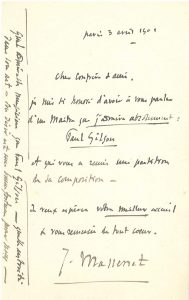 Paris 3 avril 1901
Cher Confrère & ami,
je suis si heureux d'avoir à vous parler
d'un Maître que j'admire absolument :
Paul Gilson
et qui vous a remis une partition
de sa composition —
je veux espérer votre meilleur accueil
& vous remercie de tout cœur.
J. Massenet
Quel admirable musicien que Paul Gilson —